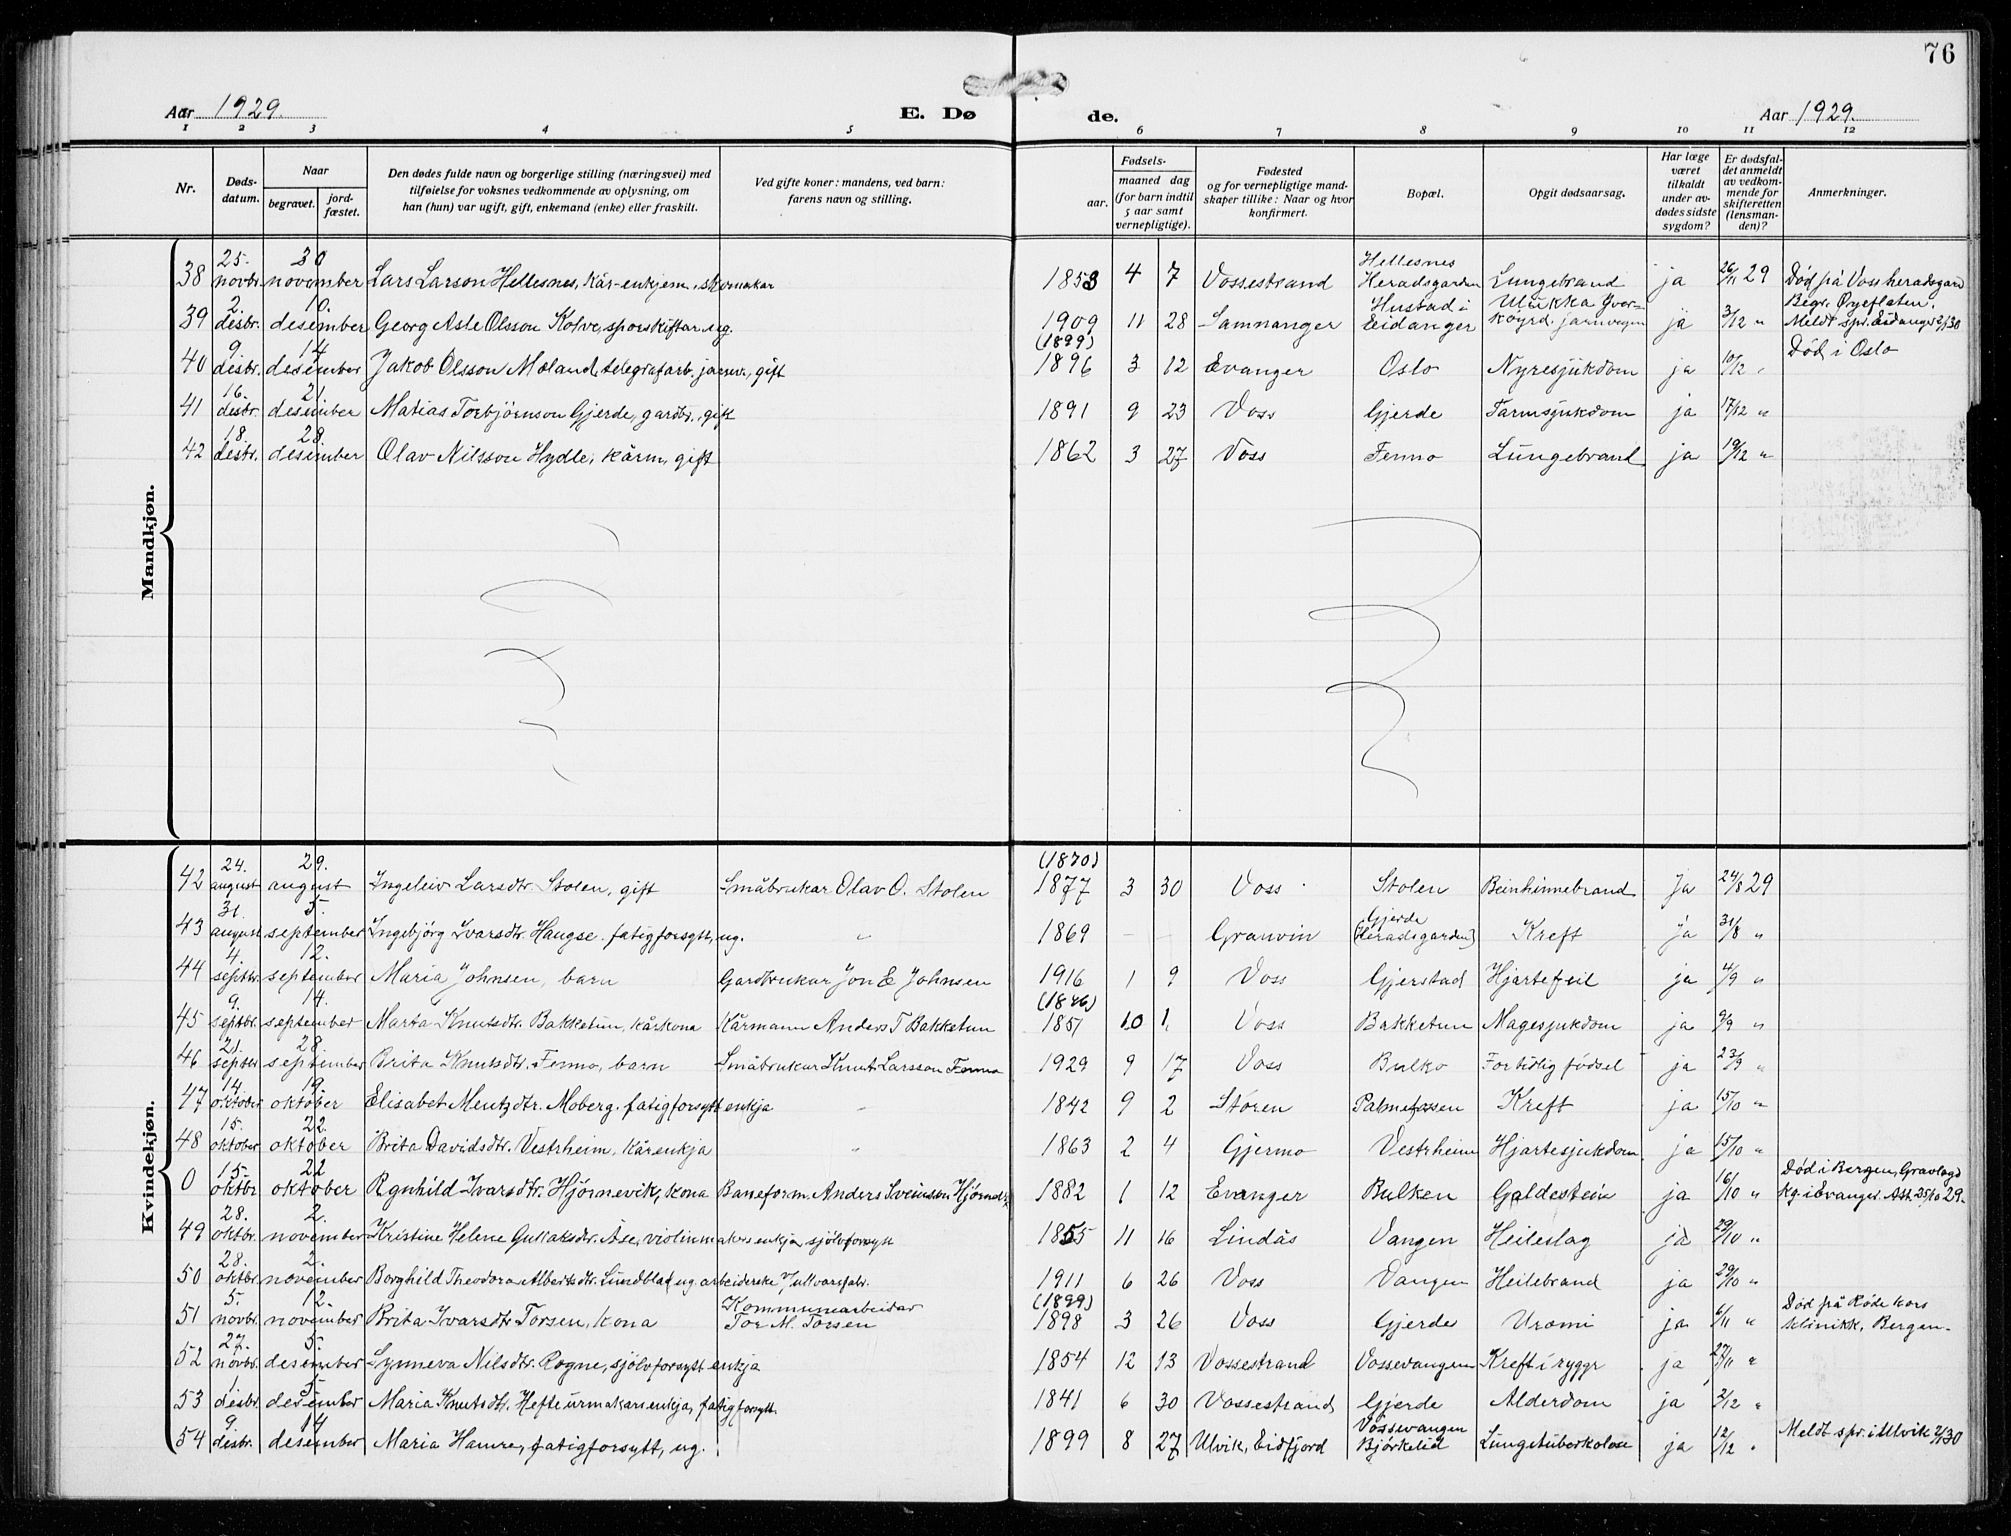 76
Aar 1929. E. Dø de. Aar 1929.
1 2 3 4 5 6 7 8 9 10 11 12
Nr. Døds-datum. Naar begravet. jord-fæstet. Den dødes fulde navn og borgerlige stilling (næringsvei) med tilføielse for voksnes vedkommende av oplysning, om han (hun) var ugift, gift, enkemand (enke) eller fraskilt. Ved gifte koner: mandens, ved barn: farens navn og stilling. Fødsels- aar. maaned dag (for barn indtil 5 aar samt vernepligtige). Fødested og for vernepligtige mand-skaper tillike: Naar og hvor konfirmert. Bopæl. Opgit dødsaarsag. Har læge været tilkaldt under av-dødes sidste sygdom? Er dødsfal-det anmeldt av vedkom-mende for skifteretten (lensman-den)? Anmerkninger.
Mandkjøn.
38 25. novbr. 30 november Lars Larson Hellesnes, kår-enkjem. skomakar 1853 4 7 Vossestrand Hellesnes Heradsgarden Lungebrand ja 26/11 29 Død på Voss heradsgard
39 2. desbr. 10. desember Georg Asle Olsson Kolve, sporskiftar, ug. 1909 11 28 Samnanger Hustad i Eidanger Ulukka Yver-köyrd. jarnvegen ja 3/12 " Begr. Øyeflaten. Meldt spr. Eidanger 2/1 30
40 9. desbr. 14 desember Jakob Olsson Mæland, telegrafarb. jarnv., gift (1899) 1896 3 12 Evanger Oslo Nyresjukdom ja 10/12 " Død i Oslo
41 16. desbr. 21. desember Matias Torbjørnson Gjerde, gardbr., gift 1891 9 23 Voss Gjerde Tarmsjukdom ja 17/12 "
42 18. desbr. 28 desember Olav Nilsson Hydle, kårm, gift 1862 3 27 Voss Fenno Lungebrand ja 19/12 "
Kvindekjøn.
42 24. august 29. august Ingeleiv Larsdtr. Stolen, gift Småbrukar Olav O. Stolen (1870) 1877 3 30 Voss Stolen Beinhinnebrand Ja 24/8 29
43 31. august 5. september Ingebjörg Ivarsdtr. Haugse. fatigforsytt, ug. " 1869 — — Granvin Gjerde (Heradsgarden) Kreft ja 31/8 "
44 4. septbr. 12. september Maria Johnsen, barn Gardbrukar Jon E Johnsen 1916 1 9 Voss Gjerstad Hjartefeil ja 4/9 "
45 9. septbr. 14. september Marta Knutsdtr. Bakketun, kårkona Kårmann Anders T Bakketun (1846) 1851 10 1 Voss Bakketun Magesjukdom ja 9/9 "
46 21. septbr. 28. september Brita Knutsdtr. Fenno, barn Småbrukar Knut Larsson Fenno 1929 9 17 Voss Bulko For tidlig födsel ja 23/9 "
47 14. oktober 19. oktober Elisabet Mentzdtr. Moberg. fatigforsytt enkja " 1842 9 2 Stören Palmefossen Kreft ja 15/10 "
48 15. oktober 22. oktober Brita Davidsdtr. Vestrheim, kårenkja " 1863 2 4 Gjermo Vestrheim Hjartesjukdom ja 15/10 "
0 15. oktbr. 22 oktober Rgnhild Ivarsdtr. Hjørnevik, kona Baneform. Anders Sveinsson Hjørnevik 1882 1 12 Evanger Bulken Galdestein ja 16/10 " Død i Bergen, Gravlagd kg. i Evanger. Att. 25/10 29.
49 28. oktbr. 2. november Kristine Helene Gullaksdtr. Åse, violinmakers enkja, sjölvforsytt 1855 11 16 Lindås Vangen Heileslag ja 29/10 "
50 28. oktbr. 2. november Borghild Theodora Albertsdtr. Lundblad, ug. arbeiderske i ullvarefabr. 1911 6 26 Voss Vangen Heilebrand ja 29/10 "
51 5. novbr. 12. november Brita Ivarsdtr. Torsen, kona Kommunearbeidar Tor M. Torsen (1899) 1898 3 26 Voss Gjerde Uræmi ja 6/11 " Død på Røde kors klinikk, Bergen.
52 27. novbr. 5. desember Synneva Nilsdtr. Rogne, sjölvforsytt enkja 1854 12 13 Vossestrand Vossevangen Kreft i ryggr ja 27/11 "
53 1. desbr. 5. desember Maria Knutsdtr. Hefte urmakarenkja, fatigforsytt. 1841 6 30 Vossestrand Gjerde Alderdom ja 2/12 "
54 9. desbr. 14 desember Maria Hamre, fatigforsytt, ug. 1899 8 27 Ulvik, Eidfjord Vossevangen Bjørkelid Lungetuberkolose ja 12/12 " Meldt spr. i Ulvik 2/1 30